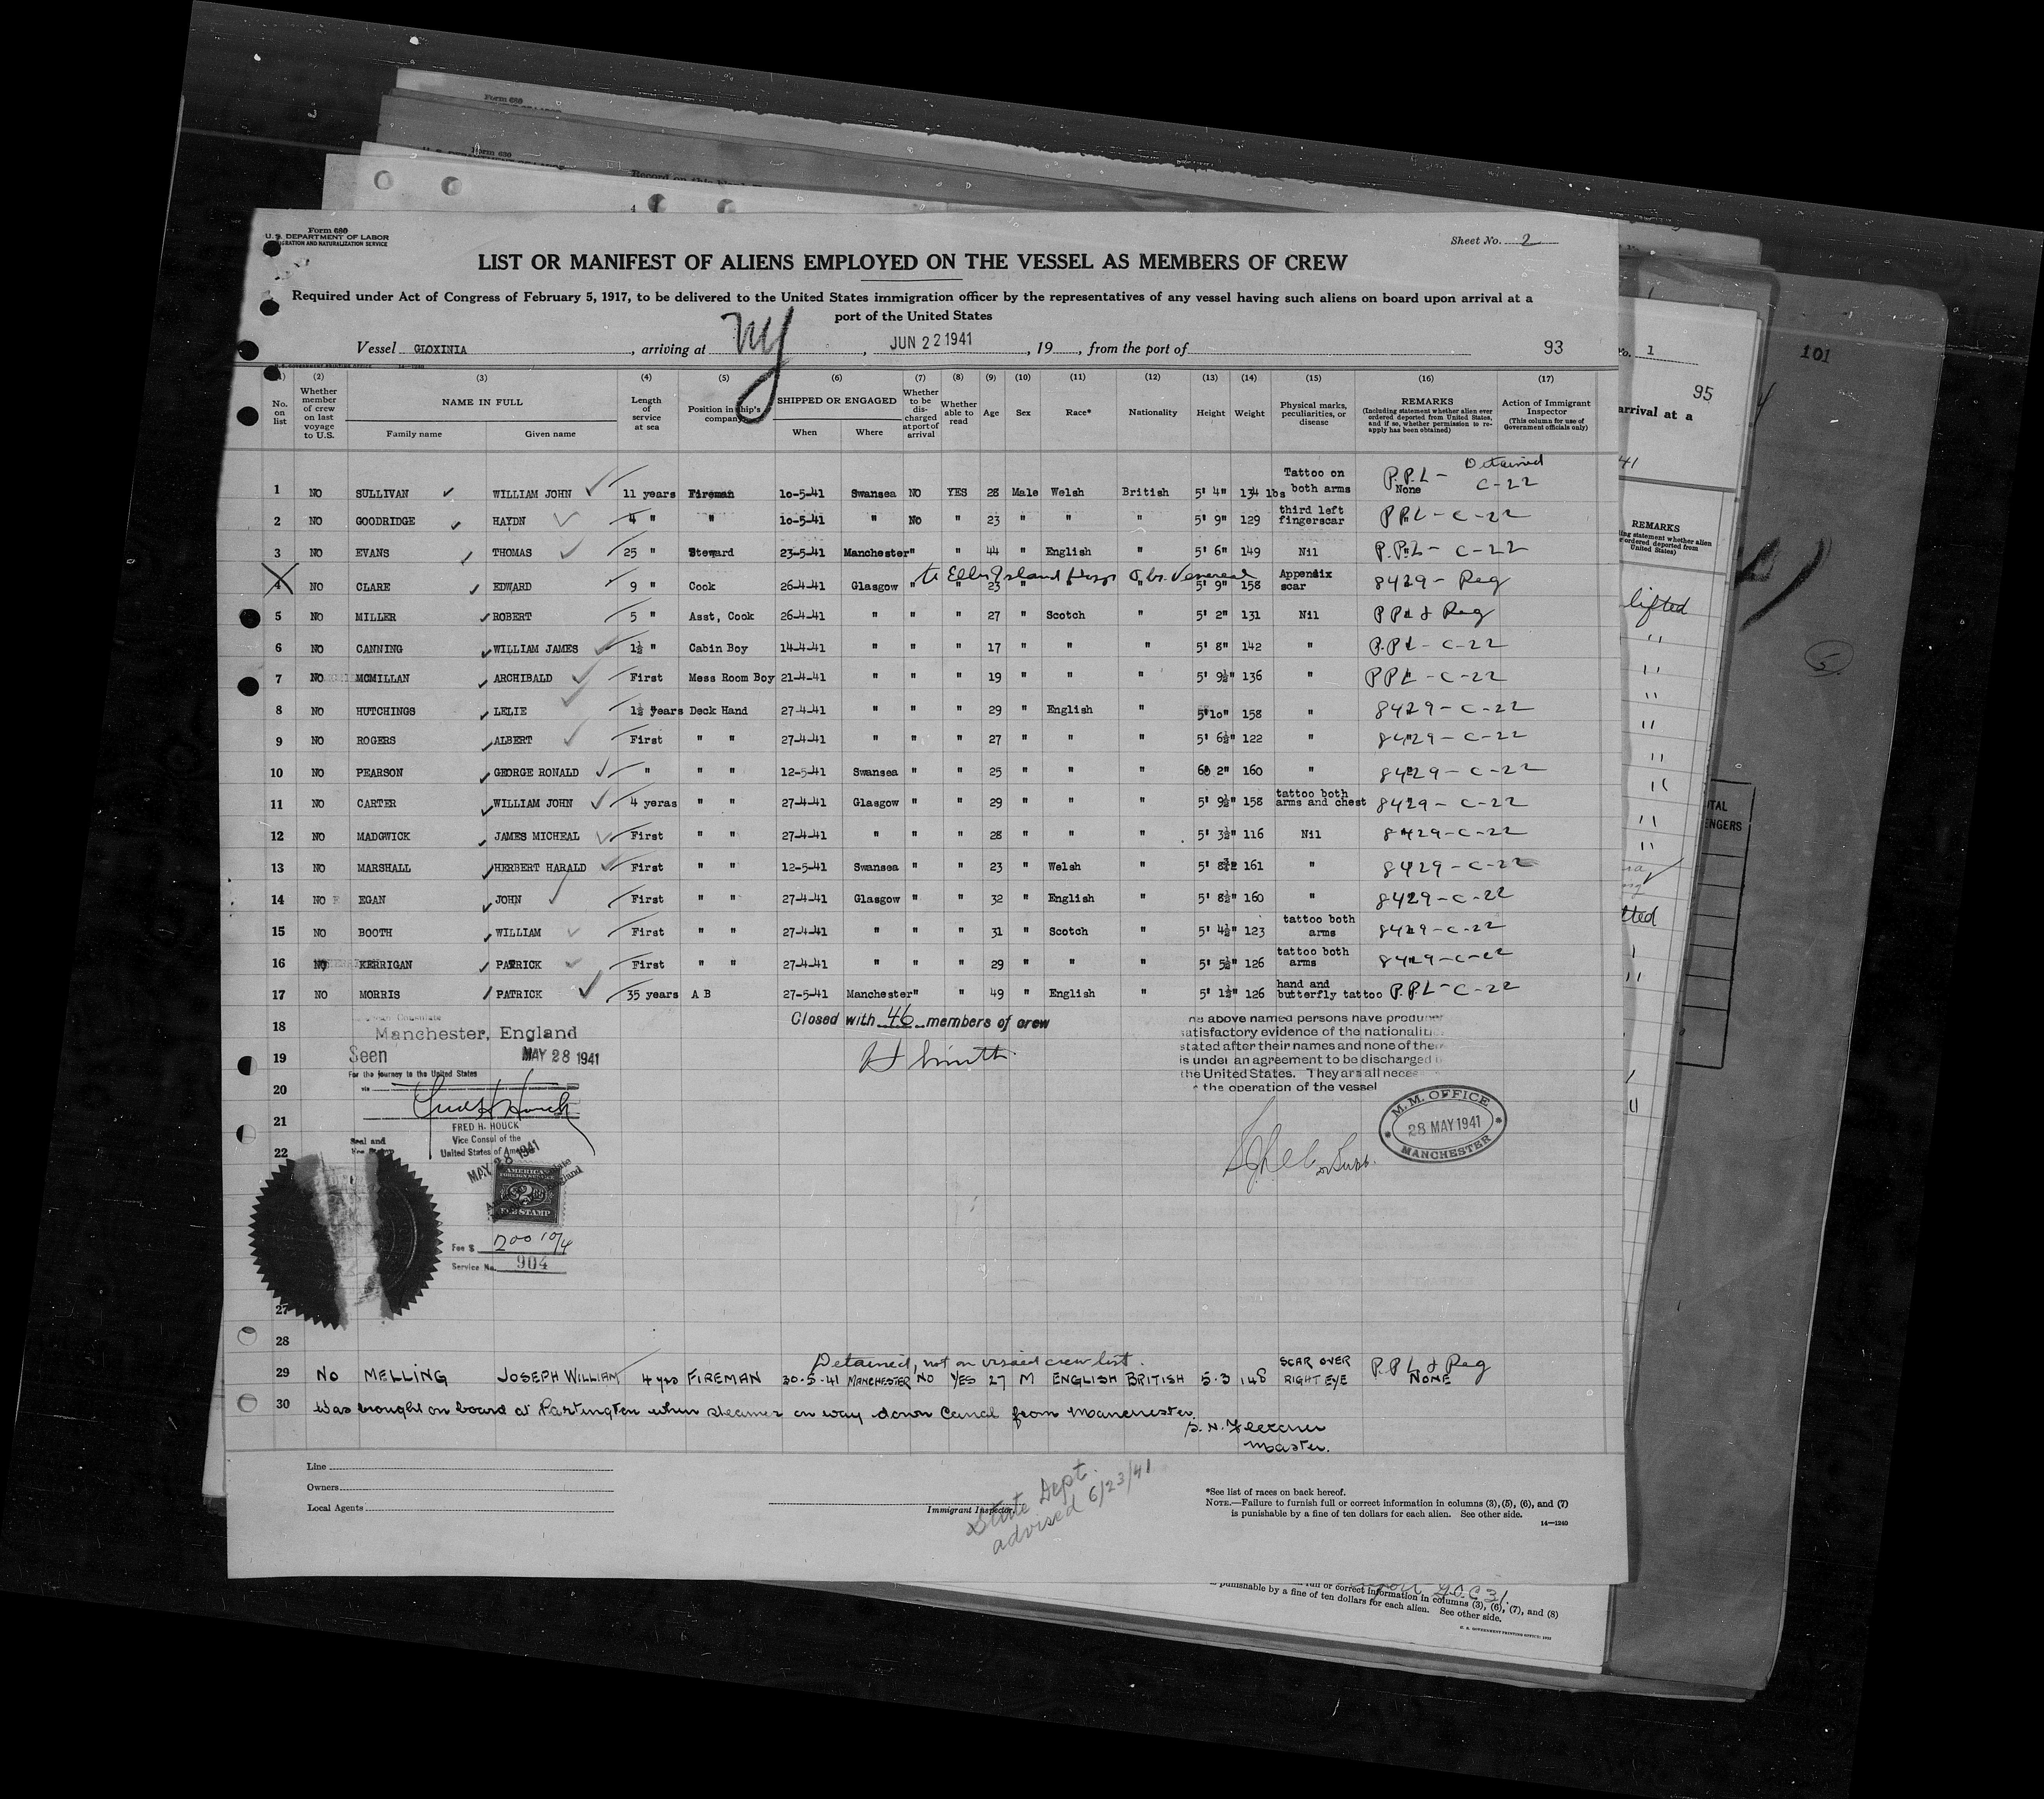 Form 680
U. S. DEPARTMENT OF LABOR
IMMIGRATION AND NATURALIZATION SERVICE
Sheet No. 2
LIST OR MANIFEST OF ALIENS EMPLOYED ON THE VESSEL AS MEMBERS OF CREW
Required under Act of Congress of February 5, 1917, to be delivered to the United States immigration officer by the representatives of any vessel having such aliens on board upon arrival at a
port of the United States
Vessel GLOXINIA, arriving at NY, JUN 22 1941, 19, from the port of 93
(1) (2) (3) (4) (5) (6) (7) (8) (9) (10) (11) (12) (13) (14) (15) (16) (17)
No. on list Whether member of crew on last voyage to U.S. NAME IN FULL Family name Given name Length of service at sea Position in ship's company SHIPPED OR ENGAGED When Where Whether to be discharged at port of arrival Whether able to read Age Sex Race* Nationality Height Weight Physical marks, peculiarities, or disease REMARKS (Including statement whether alien ever ordered deported from United States, and if so, whether permission to re-apply has been obtained) Action of Immigrant Inspector (This column for use of Government officials only)
1 NO SULLIVAN WILLIAM JOHN 11 years Fireman 10-5-41 Swansea NO YES 28 Male Welsh British 5' 4" 134 lbs Tattoo on both arms P.P.L - None Detained C-22
2 NO GOODRIDGE HAYDN 4 " " 10-5-41 " No " 23 " " " 5' 9" 129 third left fingerscar PPL - C-22
3 NO EVANS THOMAS 25 " Steward 23-5-41 Manchester " " 44 " English " 5' 6" 149 Nil P.P.L - C-22
to Ellis Island Hosp
4 NO CLARE EDWARD 9 " Cook 26-4-41 Glasgow " " 23 " " " 5' 9" 158 Appendix scar 8429 - Reg
5 NO MILLER ROBERT 5 " Asst, Cook 26-4-41 " " " 27 " Scotch " 5' 2" 131 Nil PPL & Reg
6 NO CANNING WILLIAM JAMES 1½ " Cabin Boy 14-4-41 " " " 17 " " " 5' 8" 142 " P.P.L - C-22
7 NO MCMILLAN ARCHIBALD First Mess Room Boy 21-4-41 " " " 19 " " " 5' 9½" 136 " PPL - C-22
8 NO HUTCHINGS LELIE 1½ years Deck Hand 27-4-41 " " " 29 " English " 5'10" 158 " 8429 - C-22
9 NO ROGERS ALBERT First " " 27-4-41 " " " 27 " " " 5' 6½" 122 " 8429 - C-22
10 NO PEARSON GEORGE RONALD " " " 12-5-41 Swansea " " 25 " " " 6' 2" 160 " 8429 - C-22
11 NO CARTER WILLIAM JOHN 4 yeras " " 27-4-41 Glasgow " " 29 " " " 5' 9½" 158 tattoo both arms and chest 8429 - C-22
12 NO MADGWICK JAMES MICHEAL First " " 27-4-41 " " " 28 " " " 5' 3½" 116 Nil 8429 - C-22
13 NO MARSHALL HERBERT HARALD First " " 12-5-41 Swansea " " 23 " Welsh " 5' 161 " 8429 - C-22
14 NO EGAN JOHN First " " 27-4-41 Glasgow " " 32 " English " 5' 8½" 160 " 8429 - C-22
15 NO BOOTH WILLIAM First " " 27-4-41 " " " 31 " Scotch " 5' 4½" 123 tattoo both arms 8429 - C-22
16 NO KERRIGAN PATRICK First " " 27-4-41 " " " 29 " " " 5' 5½" 126 tattoo both arms 8429 - C-22
17 NO MORRIS PATRICK 35 years A B 27-5-41 Manchester " " 49 " English " 5' 1½" 126 hand and butterfly tattoo P.P.L - C-22
18 Closed with 46 members of crew
Manchester, England
19 Seen MAY 28 1941
For the journey to the United States
via
20
FRED H. HOUCK
21 Vice Consul of the
United States of America
22 Seal and
MAY 28 1941
AMERICAN
FOREIGN SERVICE
$2
FEE STAMP
Fee $ 200 10/4
Service No. 904
above named persons have produced
satisfactory evidence of the nationalities
stated after their names and none of them
is under an agreement to be discharged
the United States. They are all
the operation of the vessel
M.M. OFFICE
28 MAY 1941
MANCHESTER
27
28
Detained, not on visaed crew list.
29 No MELLING JOSEPH WILLIAM 4 yrs FIREMAN 30-5-41 MANCHESTER NO YES 27 M ENGLISH BRITISH 5-3 148 SCAR OVER RIGHT EYE P.P.L & Reg NONE
30 Was brought on board at Partington when steamer on way down Canal from Manchester.
Master.
Line
Owners
Local Agents
Immigrant Inspector.
State Dept.
advised 6/23/41
*See list of races on back hereof.
NOTE.—Failure to furnish full or correct information in columns (3), (5), (6), and (7)
is punishable by a fine of ten dollars for each alien. See other side.
14—1240
Form 680
Form 680
No. 1
95
arrival at a
41
REMARKS
lifted
101
punishable by a fine of ten dollars for each alien. See other side.